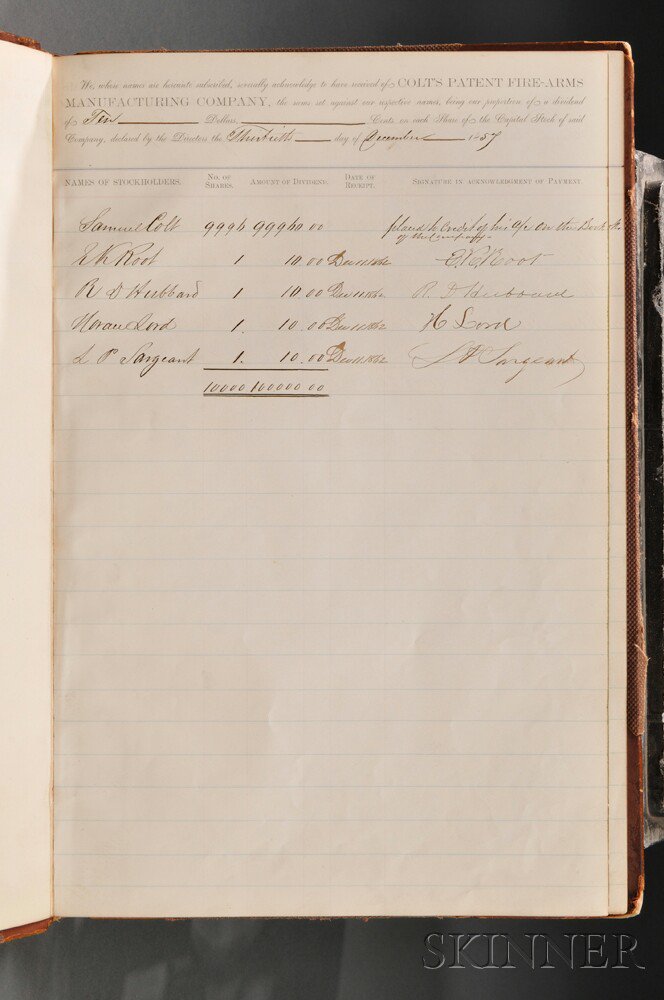 We, whose names are hereunto subscribed, severally acknowledge to have received of COLT'S PATENT FIRE-ARMS
MANUFACTURING COMPANY, the sums set against our respective names, being our proportion of a dividend
of Ten Dollars, Cents, on each Share of the Capital Stock of said
Company, declared by the Directors the Thirtieth day of December 1857
NAMES OF STOCKHOLDERS. NO. OF SHARES. AMOUNT OF DIVIDEND. DATE OF RECEIPT. SIGNATURE IN ACKNOWLEDGMENT OF PAYMENT.
Samuel Colt 9996 99960.00 placed to Credit of his a/c on the Book
of the Company
E K Root 1 10.00 E. K. Root
R D Hubbard 1 10.00 R. D Hubbard
Horace Lord 1. 10.00 H Lord
L P Sargeant 1. 10.00 L P Sargeant
10000 100000.00
SKINNER